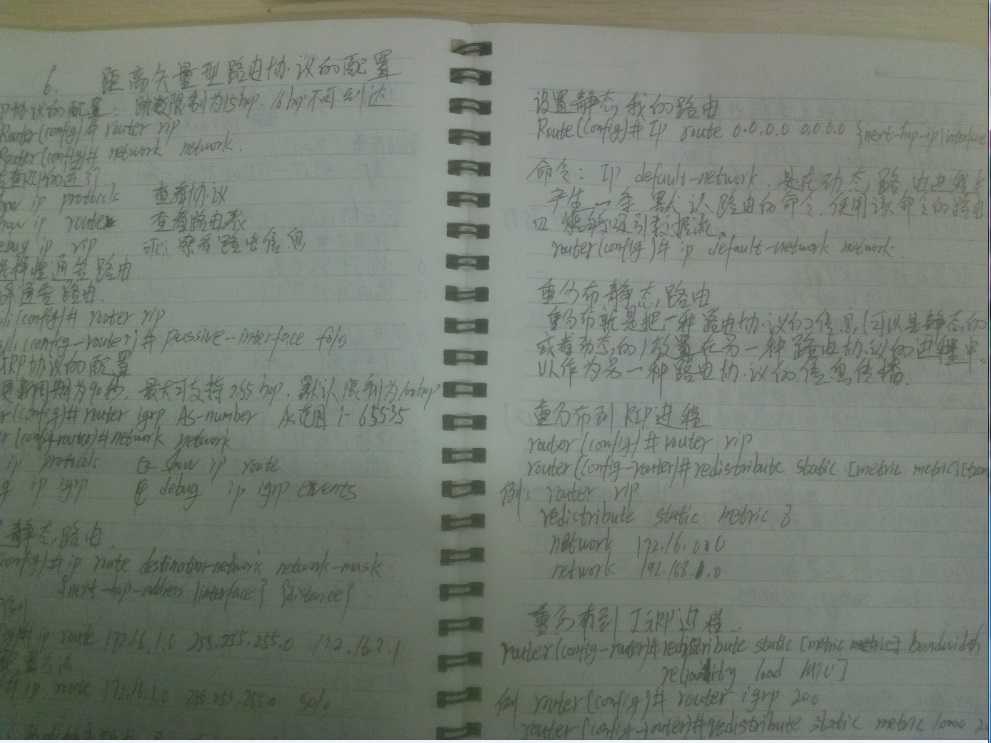 6. 距离矢量型路由协议的配置
P协议的配置：跳数限制为15hop. 16hop不可到达
Router(config)# router rip
Router(config)# network network.
ow ip protocols 查看协议
ow ip route 查看路由表
ebug ip rip 查看路由信息
路由
路由.
(config)# router rip
(config-router)# passive-interface f0/0
GRP协议的配置
更新周期为90秒，最大可支持255 hop，默认限制为100hop
r(config)# router igrp As-number As范围 1-65535
r(config-router)# network network
ip protocols show ip route
g ip igrp debug ip igrp events
静态路由
config)# ip route destination-network network-mask
{next-hop-address|interface} {distance}
# ip route 172.16.1.0 255.255.255.0 172.16.2.1
# ip route 172.16.1.0 255.255.255.0 S0/0
设置静态 的路由
Route(config)# Ip route 0.0.0.0 0.0.0.0 {next-hop-ip|interface
命令：Ip default-network. 是在动态路由进程
产生一条默认路由的命令.使用该命令的路由
能够吸引数据流.
router(config)# ip default-network network.
重分布静态路由
重分布就是把一种路由协议的信息(可以是静态的
或者动态的)放置在另一种路由协议的进程中.
以作为另一种路由协议的信息传播.
重分布到RIP进程
router(config)# router rip
router(config-router)# redistribute static [metric metric]
例：router rip
redistribute static metric 3
network 172.16.0.0
network 192.168.1.0
重分布到IGRP进程.
router(config-router)# redistribute static [metric metric] bandwidth
reliability load MTU]
例 router(config)# router igrp 200
router(config-router)# redistribute static metric 10000